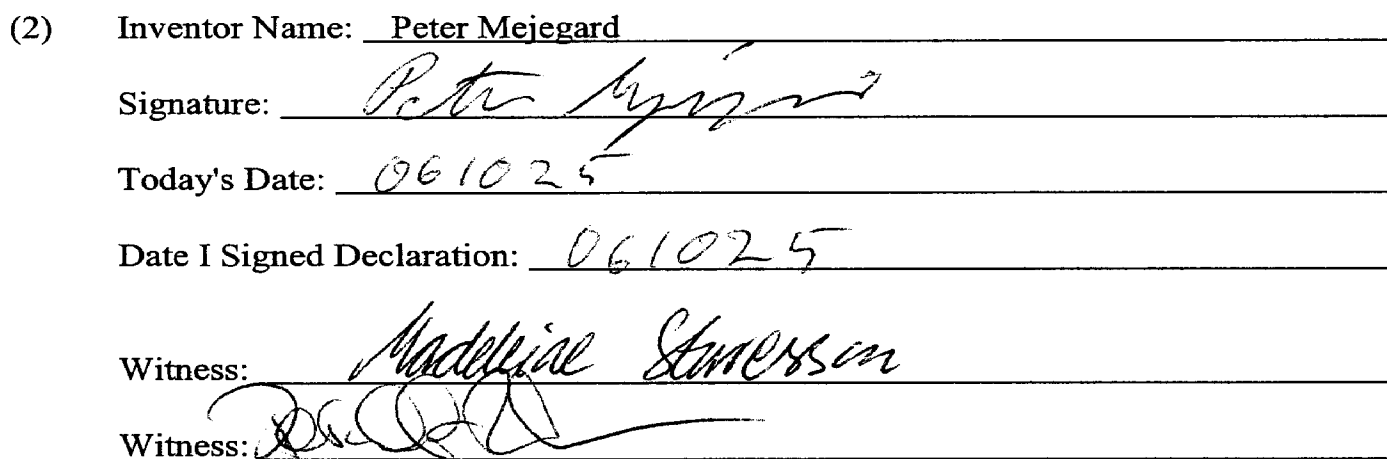 (2) Inventor Name: Peter Mejegard
Signature: Peter Mejegard
Today's Date: 061025
Date I Signed Declaration: 061025
Witness: Madeleine
Witness: